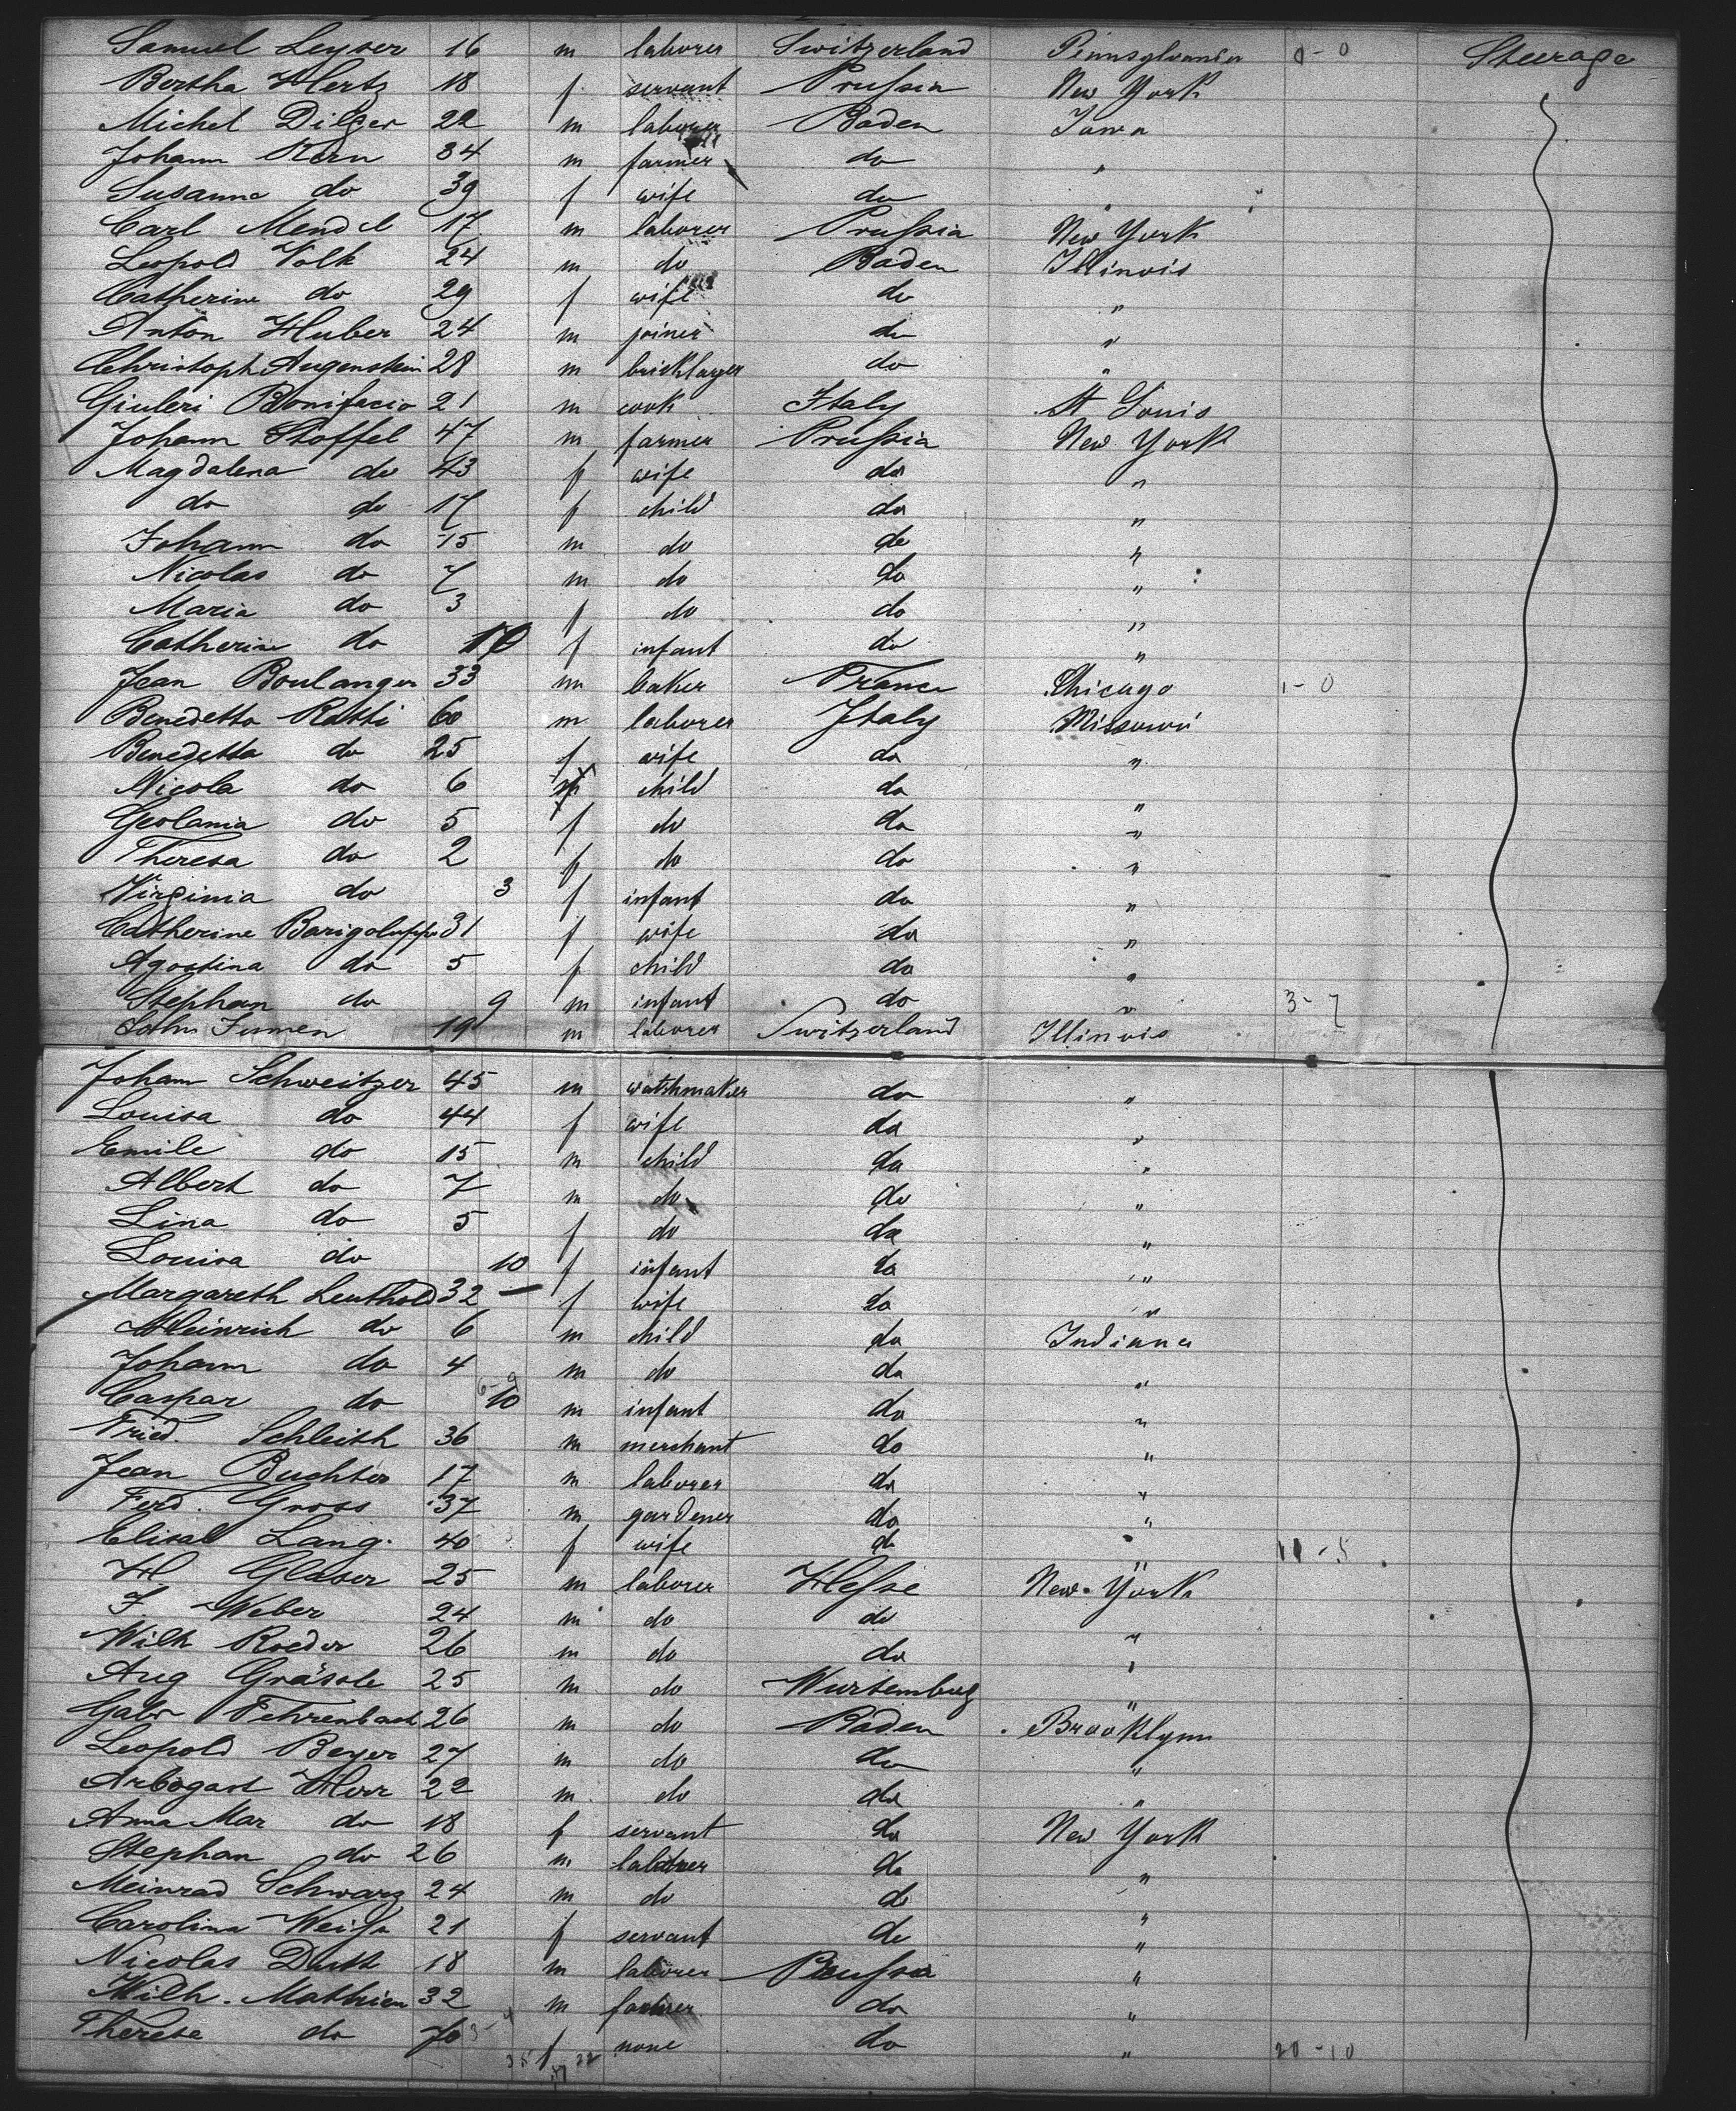 Samuel Leyser 16 m laborer Switzerland Pennsylvania 0-0 Steerage
Bertha Hertz 18 f servant Prussia New York
Michel Dilger 22 m laborer Baden Iowa
Johann Kern 34 m farmer do "
Susanna do 39 f wife do "
Carl Mendel 17 m laborer Prussia New York
Leopold Volk 24 m do Baden Illinois
Catherine do 29 f wife do "
Anton Huber 24 m joiner do "
Christoph Augenstein 28 m bricklayer do "
Giuleri Bonifacio 21 m cook Italy St Louis
Johann Stoffel 47 m farmer Prussia New York
Magdalena do 43 f wife do "
do do 17 f child do "
Johann do 15 m do do "
Nicolas do 7 m do do "
Maria do 3 f do do "
Catherine do 10 f infant do "
Jean Boulanger 33 m baker France Chicago 1-0
Benedetto Ratti 60 m laborer Italy Missouri
Benedetta do 25 f wife do "
Nicola do 6 child do "
Geolamia do 5 f do do "
Theresa do 2 f do do "
Virginia do 3 f infant do "
Catherine 31 f wife do "
Agostina do 5 f child do "
Stephan do 9 m infant do " 3-7
19 m laborer Switzerland Illinois
Johann Schweitzer 45 m watchmaker do "
Louisa do 44 f wife do "
Emile do 15 m child do "
Albert do 7 m do do "
Lina do 5 f do do "
Louisa do 10 f infant do "
Margareth Leuthold 32 f wife do "
Heinrich do 6 m child do Indiana
Johann do 4 m do do "
Caspar do 10 m infant do "
Fried. Schleith 36 m merchant do "
Jean Buchter 17 m laborer do "
Ferd. Gross 37 m gardener do "
Elisab Lang. 40 f wife do " 11-5
H Glaser 25 m laborer Hesse New York
J Weber 24 m do do "
Wilh Roeder 26 m do do "
Aug Grässle 25 m do Wurtemberg "
Gabr Fehrenbach 26 m do Baden Brooklynn
Leopold Beyer 27 m do do "
Arbogast Herr 22 m do do "
Anna Mar do 18 f servant do New York
Stephan do 26 m laborer do "
Meinrad Schwarz 24 m do do "
Carolina Weiss 21 f servant do "
Nicolas 18 m laborer Prussia "
Wilh. Mathieu 32 m farmer do "
Therese do 70 f none do " 20-10